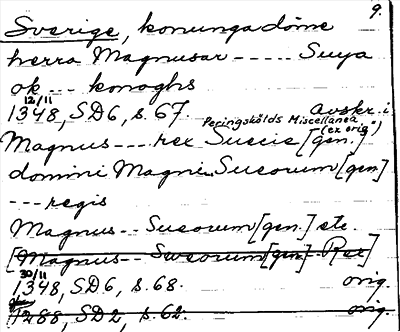 9.
Sverige, konungadöme
herra Magnusar ----- Suya
ok --- konoghs
12/11
1348, SD6, s. 67. Avskr. i
Peringskölds Miscellanea
(ex orig.)
Magnus --- rex Suecie [gen.]
domini Magni Sueorum [gen]
--- regis
Magnus -- Sueorum [gen.] etc.
[Magnus -- Sweorum [gen] Rex]
30/11
1348, SD6, s. 68. orig.
1288, SD2, s. 62. orig.